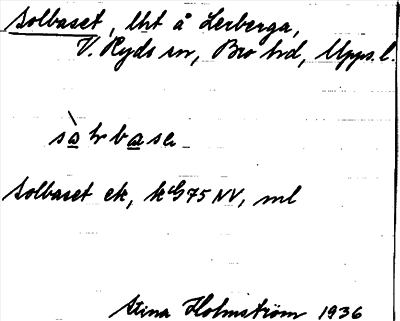 Solbaset, lht å Lerberga,
V. Ryds sn, Bro hd, Upps. l.
Solbaset ek, k G75 NV, ml
Stina Holmström 1936